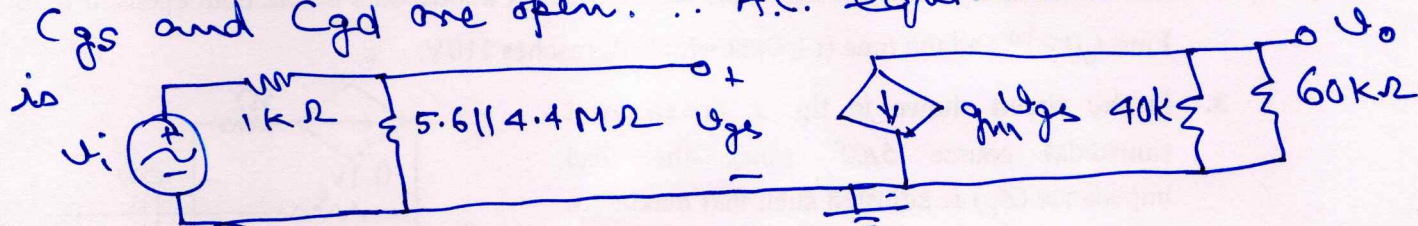 Cgs and Cgd are open. ∴ A.C. equi
is
vi + − 1kΩ 5.6||4.4MΩ + vgs − gmvgs 40k 60KΩ vo